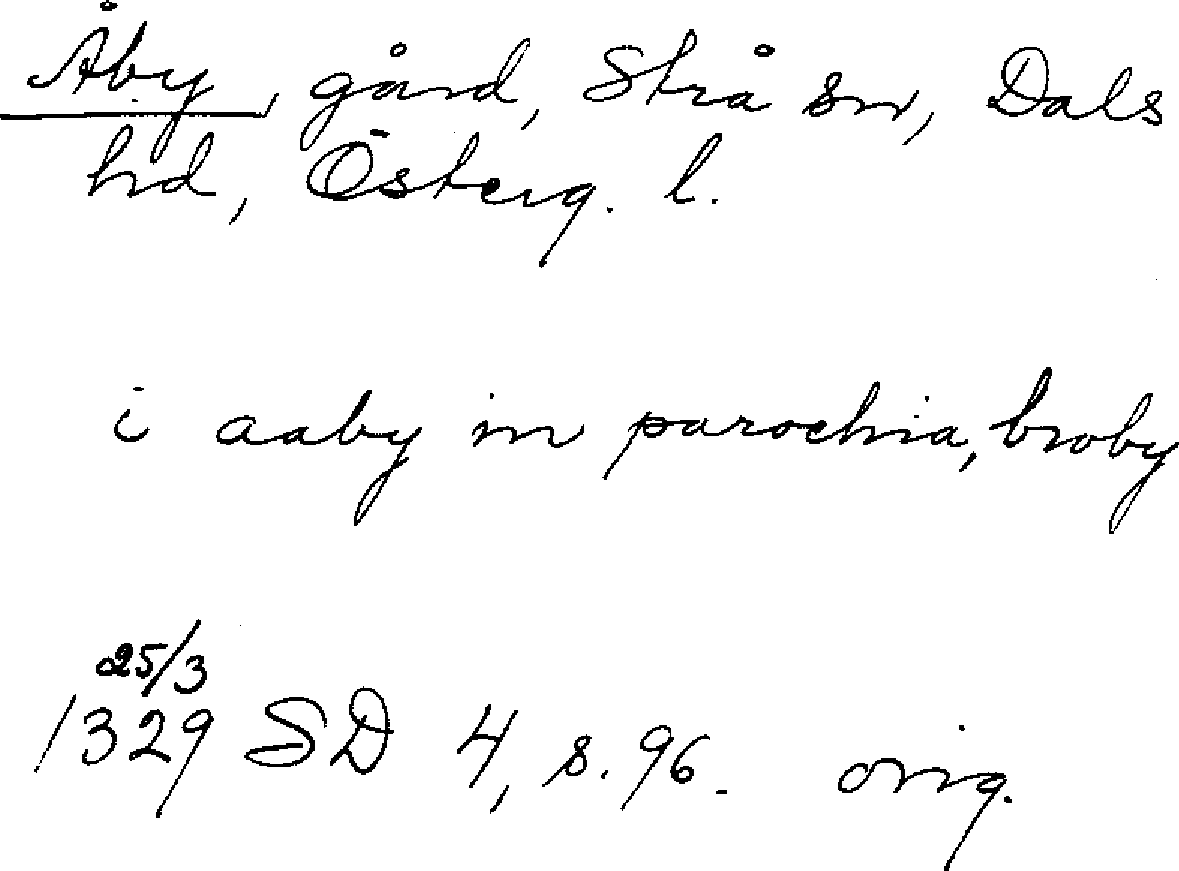 Åby, gård, Strå sn, Dals
hd, Österg. l.
i aaby in parochia, broby
25/3
1329 SD 4, s. 96. orig.